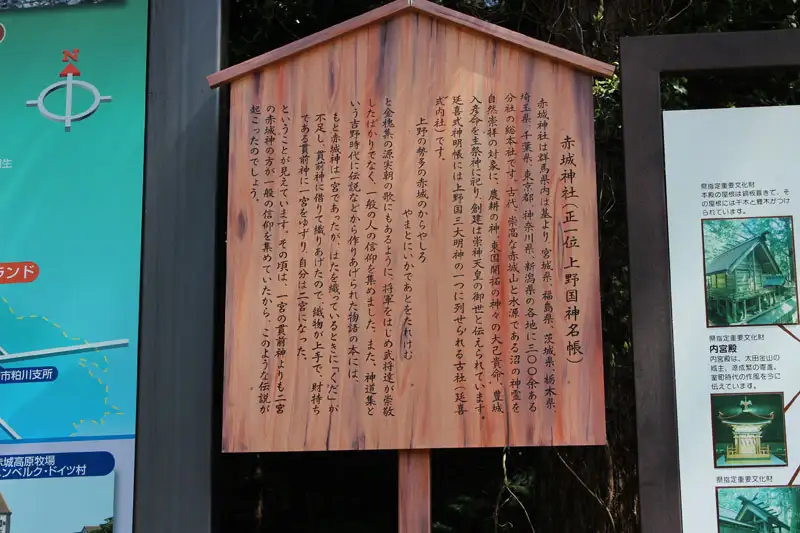 赤城神社(正一位 上野国神名帳)
赤城神社は群馬県内は基より、宮城県、福島県、茨城県、栃木県、
埼玉県、千葉県、東京都、神奈川県、新潟県の各地に三〇〇余ある
分社の総本社です。古代、崇高な赤城山と水源である沼の神霊を
自然崇拝の対象に、農耕の神、東国開拓の神々の大己貴命、豊城
入彦命を主祭神に祀り、創建は崇神天皇の御世と伝えられています。
延喜式神明帳には上野国三大明神の一つに列せられる古社(延喜
式内社)です。
上野の勢多の赤城のからやしろ
やまとにいかであとをたれけむ
と金槐集の源実朝の歌にもあるように、将軍をはじめ武将達が崇敬
したばかりでなく、一般の人の信仰を集めました。また、神道集と
いう吉野時代に伝説などから作りあげられた物語の本には、
もと赤城神は一宮であったが、はたを織っているときに「くだ」が
不足し、貫前神に借りて織りあげたので、織物が上手で、財持ち
である貫前神に一宮をゆずり、自分は二宮になった。
ということが見えています。その頃は、一宮の貫前神よりも二宮
の赤城神の方が一般の信仰を集めていたから、このような伝説が
起こったのでしょう。
N
ランド
市粕川支所
赤城高原牧場
ンベルク・ドイツ村
県指定重要文化財
本殿の屋根は銅板葺きで、そ
の屋根には千木と鰹木がつけ
られています。
県指定重要文化財
内宮殿
内宮殿は、太田金山の
城主、源成繁の寄進。
室町時代の作風を今に
伝えています。
県指定重要文化財